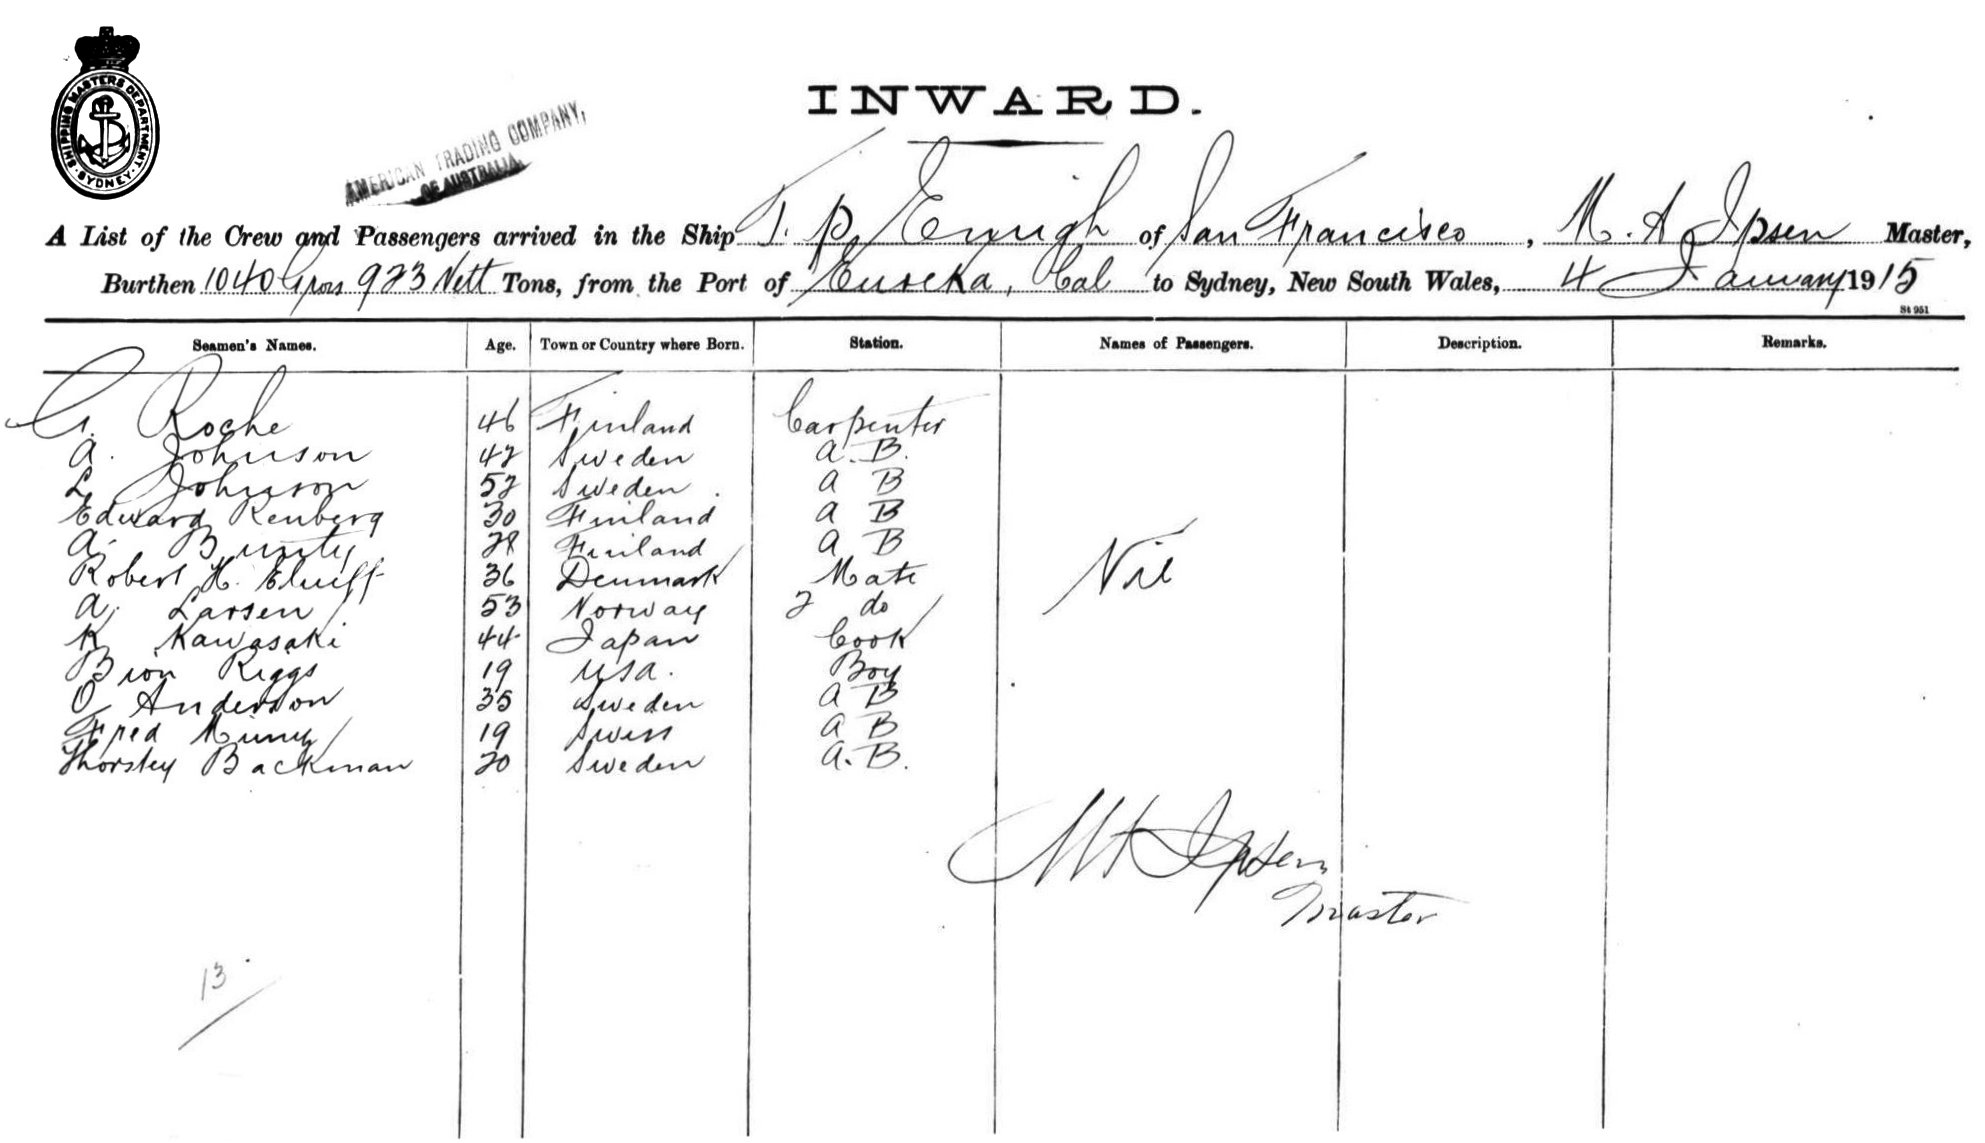 SHIPPING MASTERS DEPARTMENT
SYDNEY
INWARD.
AMERICAN TRADING COMPANY,
OF AUSTRALIA.
A List of the Crew and Passengers arrived in the Ship T. P. Emigh of San Francisco, M. A Ipsen Master,
Burthen 1040 Gross 923 Nett Tons, from the Port of Eureka, Cal to Sydney, New South Wales, 4 January 1915
St 951
Seamen's Names. Age. Town or Country where Born. Station. Names of Passengers. Description. Remarks.
G. Roche 46 Finland Carpenter
A. Johnson 42 Sweden A.B.
L Johnson 52 Sweden A B
Edward Renberg 30 Finland A B
A. 28 Finland A B
Nil
Robert H. 36 Denmark Mate
A. Larsen 53 Norway 2 do
K Kawasaki 44 Japan Cook
Bion Riggs 19 USA. Boy
O Anderson 35 Sweden A B
Fred 19 Swiss A B
Backman 20 Sweden A.B.
M A Ipsen
Master
13